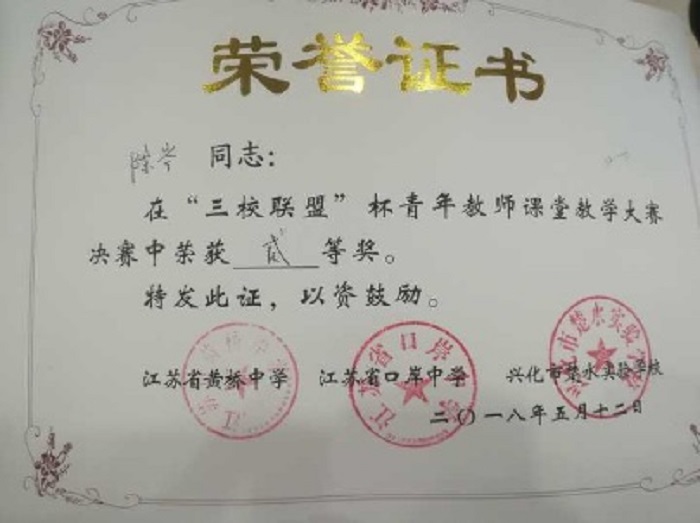 荣誉证书
陈岑 同志：
在“三校联盟”杯青年教师课堂教学大赛
决赛中荣获 贰 等奖。
特发此证，以资鼓励。
江苏省黄桥中学 江苏省口岸中学 兴化市楚水实验学校
二〇一八年五月十二日